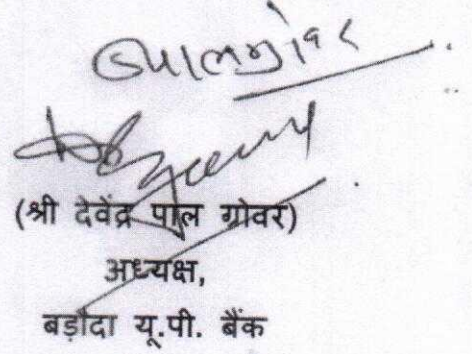 (श्री देवेंद्र पाल ग्रोवर)
अध्यक्ष,
बड़ौदा यू.पी. बैंक